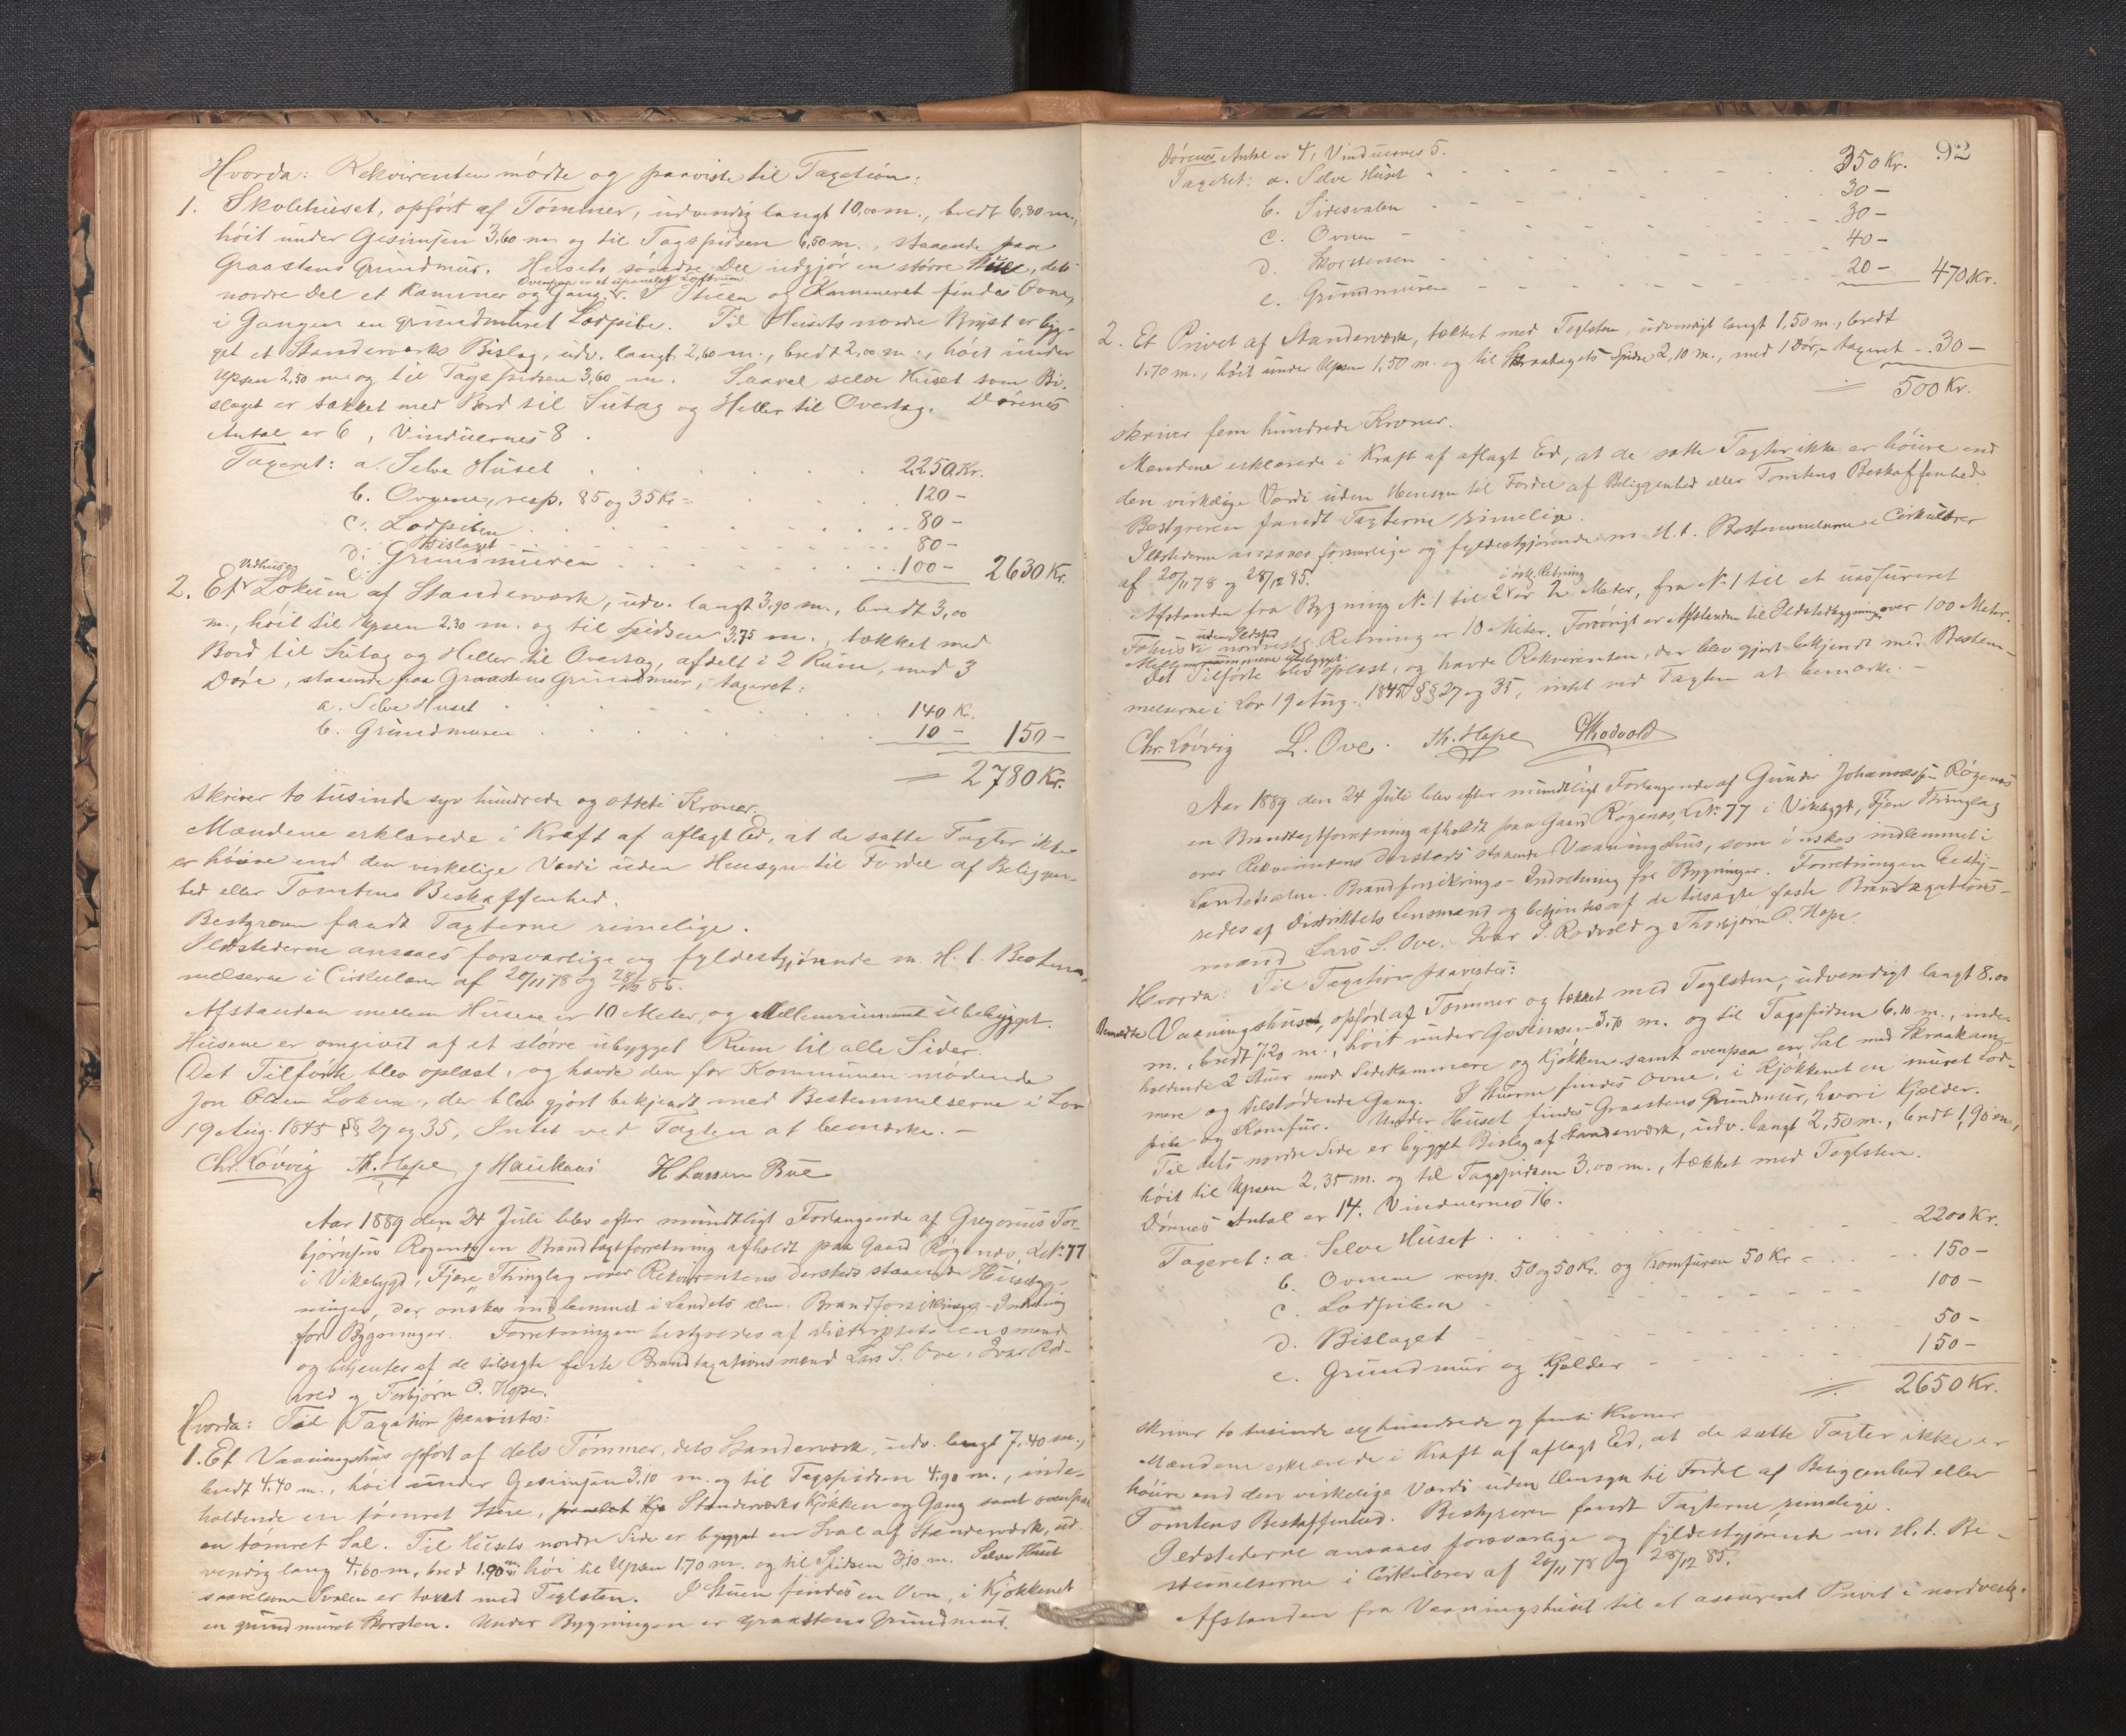 Hvorda: Rekvirenten mödte og paaviste til Taxation:
1. Skolehuset, opfört af Tömmer, udvendig langt 10,00 m., bredt 6,80 m.,
höit under Gesimsen 3,60 m. og til Tagspidsen 6,50 m., staaende paa
Graastens Grundmur. Husets söndre Del udgjör en större Stue, dets
Ovenpaa er et upanelet Loftrum
nordre Del et Kammer og Gang. I Stuen og Kammeret findes Ovne,
i Gangen en grundmuret Lodpibe. Til Husets nordre Bryst er byg-
get et Standerværks Bislag, udv. langt 2,60 m., bredt 2,00 m., höit under
Upsen 2,50 m. og til Tagspidsen 3,60 m. Saavel selve Huset som Bi-
slaget er tækket med Bord til Sutag og Heller til Overtag. Dörenes
Antal er 6, Vinduernes 8.
Taxeret: a. Selve Huset 2250 Kr.
b. Ovnene, resp. 85 og 35 Kr = 120 -
c. Lodpiben 80 -
d. Bislaget 80 -
e. Grundmuren 100 - 2630 Kr.
Vedhus og
2. Et Lokum af Standerværk, udv. langt 3,90 m., bredt 3,00
m., höit til Upsen 2,30 m. og til Spidsen 3,75 m., tækket med
Bord til Sutag og Heller til Overtag, afdelt i 2 Rum, med 3
Döre, staaende paa Graastens Grundmur, taxeret:
a. Selve Huset 140 Kr.
b. Grundmuren 10 - 150 -
= 2780 Kr.
skriver to tusinde syv hundrede og otteti Kroner.
Mændene erklærede i Kraft af aflagt Ed, at de satte Taxter ikke
er höiere end den virkelige Værdi uden Hensyn til Fordel af Beliggen-
hed eller Tomtens Beskaffenhed.
Bestyreren fandt Taxterne rimelige.
Ildstederne ansaaes forsvarlige og fyldestgjörende m. H. t. Bestem-
melserne i Cirkulærer af 20/11 78 og 28/12 85.
Afstanden mellem Husene er 10 Meter, og Mellemrummet ubebygget.
Husene er omgivet af et större ubygget Rum til alle Sider.
Det Tilförte blev oplæst, og havde den for Kommunen mödende
Jon Olsen Lokna, der blev gjort bekjendt med Bestemmelserne i Lov
19 Aug. 1845 §§ 27 og 35, Intet ved Taxten at bemærke. -
Chr. Lövvig Th. Hope J Haukaas H Larsen Bue
Aar 1889 den 24 Juli blev efter mundtligt Forlangende af Gregorius Tor-
björnsen Rögenæs en Brandtaxtforretning afholdt paa Gaard Rögenæs, L. No. 77
i Vikebygd, Fjære Thinglag over Rekvirentens dersteds staaende Husbyg-
ninger, der önskes indlemmet i Landets alm. Brandforsikrings-Indretning
for Bygninger. Forretningen bestyredes af Distriktets Lensmand
og betjentes af de tilsagte faste Brandtaxationsmænd Lars S. Ove, Ivar Rod-
vold og Torbjörn O. Hope.
Hvorda: Til Taxation paavistes:
1. Et Vaaningshus opfört af dels Tömmer, dels Standerværk, udv. langt 7,40 m.,
bredt 4,40 m., höit under Gesimsen 3,10 m. og til Tagspidsen 4,90 m., inde-
holdende en tömret Stue, Standerværks Kjökken og Gang samt ovenpaa
en tömret Sal. Til Husets nordre Side er bygget en Sval af Standerværk, ud-
vendig lang 4,60 m., bred 1,90 m., höi til Upsen 1,70 m. og til Spidsen 3,10 m. Selve Huset
saavelsom Svalen er tækket med Teglsten. I Stuen findes en Ovn, i Kjökkenet
en grundmuret Skorsten. Under Bygningen er Graastens Grundmur.
92
Dörenes Antal er 4, Vinduernes 5.
Taxeret: a. Selve Huset 350 Kr.
b. Sidesvalen 30 -
c. Ovnen 30 -
d. Skorstenen 40 -
e. Grundmuren 20 - 470 Kr.
2. Et Privet af Standerværk, tækket med Teglsten, udvendigt langt 1,50 m., bredt
1,70 m., höit under Upsen 1,50 m. og til Skraatagets Spidse 2,10 m., med 1 Dör, - taxeret 30 -
= 500 Kr.
skriver fem hundrede Kroner.
Mændene erklærede i Kraft af aflagt Ed, at de satte Taxter ikke er höiere end
den virkelige Værdi uden Hensyn til Fordel af Beliggenhed eller Tomtens Beskaffenhed.
Bestyreren fandt Taxterne rimelige.
Ildstederne ansaaes forsvarlige og fyldestgjörende m. H. t. Bestemmelserne i Cirkulærer
af 20/11 78 og 28/12 85.
i östl. Retning
Afstanden fra Bygning No. 1 til 2 er 2 Meter, fra No. 1 til et uassureret
uden Ildsted
Fæhus i nordvestl. Retning er 10 Meter. Forövrigt er Afstanden til Ildstedbygninger over 100 Meter.
Mellemrummene ubebygget.
Det Tilförte blev oplæst, og havde Rekvirenten, der blev gjort bekjendt med Bestem-
melserne i Lov 19 Aug. 1845 §§ 27 og 35, intet ved Taxten at bemærke. -
Chr. Lövvig L. Ove. Th. Hope Rodvold
Aar 1889 den 24 Juli blev efter mundtligt Forlangende af Gunder Johannessen Rögenæs
en Brandtaxtforretning afholdt paa Gaard Rögenæs, L. No. 77 i Vikebygd, Fjære Thinglag
over Rekvirentens dersteds staaende Vaaningshus, som önskes indlemmet i
Landets alm. Brandforsikrings-Indretning for Bygninger. Forretningen besty-
redes af Distriktets Lensmand og betjentes af de tilsagte faste Brandtaxations-
mænd Lars S. Ove, Ivar S. Rodvold og Thorbjörn O. Hope.
Hvorda: Til Taxation paavistes:
Bemeldte Vaaningshuset, opfört af Tömmer og tækket med Teglsten, udvendigt langt 8,00
m., bredt 7,20 m., höit under Gesimsen 3,70 m. og til Tagspidsen 6,10 m., inde-
holdende 2 Stuer med Sidekammere og Kjökken samt ovenpaa en Sal med Skraakam-
mere og tilstödende Gang. I Stuerne findes Ovne, i Kjökkenet en muret Lod-
pibe og Komfur. Under Huset findes Graastens Grundmur, hvori Kjælder.
Til dets nordre Side er bygget Bislag af Standerværk, udv. langt 2,50 m., bredt 1,90 m.,
höit til Upsen 2,35 m. og til Tagspidsen 3,00 m., tækket med Teglsten.
Dörenes Antal er 14, Vinduernes 16.
Taxeret: a. Selve Huset 2200 Kr.
b. Ovnene resp. 50 og 50 Kr. og Komfuren 50 Kr = 150 -
c. Lodpiben 100 -
d. Bislaget 50 -
e. Grundmur og Kjælder 150 -
= 2650 Kr.
skriver to tusinde sexhundrede og femti Kroner
Mændene erklærede i Kraft af aflagt Ed, at de satte Taxter ikke er
höiere end den virkelige Værdi uden Hensyn til Fordel af Beliggenhed eller
Tomtens Beskaffenhed. Bestyreren fandt Taxterne rimelige.
Ildstederne ansaaes forsvarlige og fyldestgjörende m. H. t. Be-
stemmelserne i Cirkulærer af 20/11 78 og 28/12 85.
Afstanden fra Vaaningshuset til et assureret Privet i nordvestl.